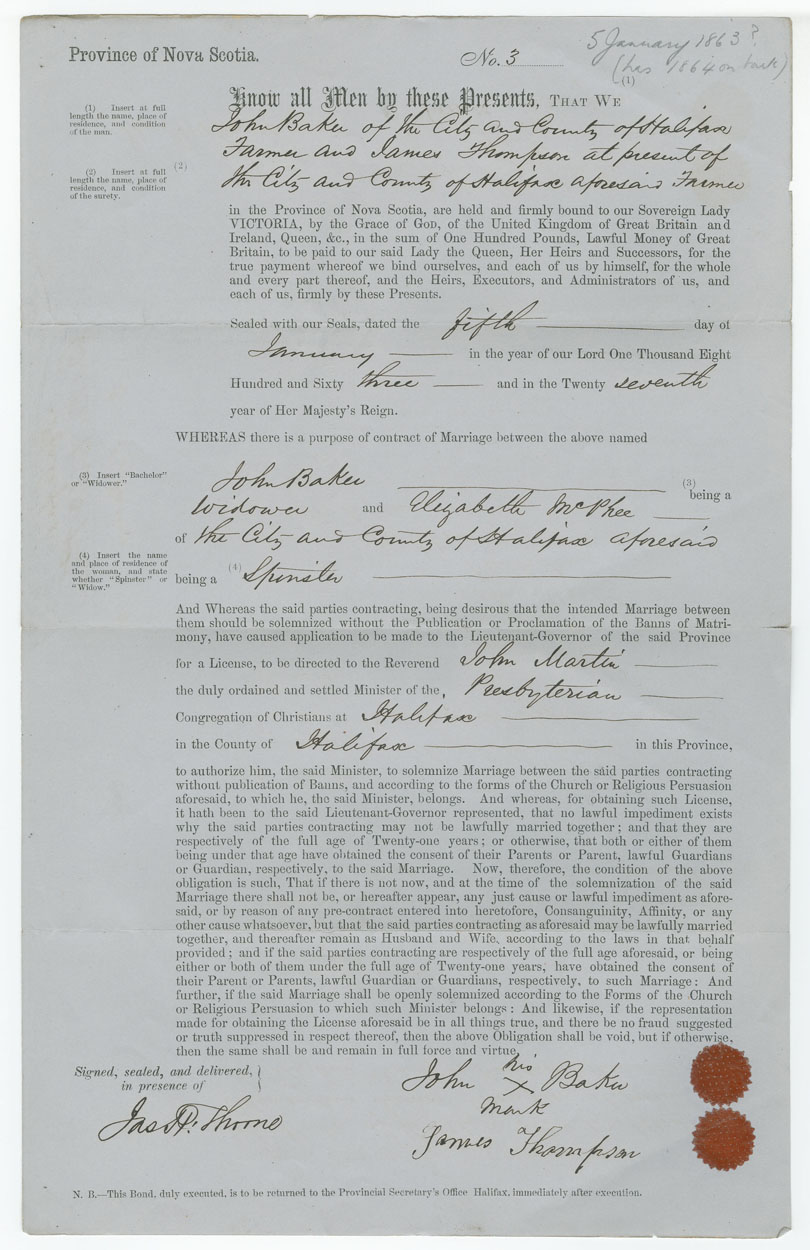 Province of Nova Scotia.
No. 3
5 January 1863?
(has 1864 on back)
(1)
Know all Men by these Presents, THAT WE
(1) Insert at full
length the name, place of
residence, and condition
of the man.
John Baker of the City and County of Halifax
Farmer and James Thompson at present of
(2) Insert at full
length the name, place of
residence, and condition
of the surety.
(2)
the City and County of Halifax aforesaid Farmer
in the Province of Nova Scotia, are held and firmly bound to our Sovereign Lady
VICTORIA, by the Grace of GOD, of the United Kingdom of Great Britain and
Ireland, Queen, &c., in the sum of One Hundred Pounds, Lawful Money of Great
Britain, to be paid to our said Lady the Queen, Her Heirs and Successors, for the
true payment whereof we bind ourselves, and each of us by himself, for the whole
and every part thereof, and the Heirs, Executors, and Administrators of us, and
each of us, firmly by these Presents.
Sealed with our Seals, dated the fifth day of
January in the year of our Lord One Thousand Eight
Hundred and Sixty three and in the Twenty seventh
year of Her Majesty's Reign.
WHEREAS there is a purpose of contract of Marriage between the above named
(3) Insert "Bachelor"
or "Widower."
John Baker (3) being a
Widower and Elizabeth McPhee
of the City and County of Halifax aforesaid
(4) Insert the name
and place of residence of
the woman, and state
whether "Spinster" or
"Widow."
being a (4) Spinster
And Whereas the said parties contracting, being desirous that the intended Marriage between
them should be solemnized without the Publication or Proclamation of the Banns of Matri-
mony, have caused application to be made to the Lieutenant-Governor of the said Province
for a License, to be directed to the Reverend John Martin
the duly ordained and settled Minister of the, Presbyterian
Congregation of Christians at Halifax
in the County of Halifax in this Province,
to authorize him, the said Minister, to solemnize Marriage between the said parties contracting
without publication of Banns, and according to the forms of the Church or Religious Persuasion
aforesaid, to which he, the said Minister, belongs. And whereas, for obtaining such License,
it hath been to the said Lieutenant-Governor represented, that no lawful impediment exists
why the said parties contracting may not be lawfully married together; and that they are
respectively of the full age of Twenty-one years; or otherwise, that both or either of them
being under that age have obtained the consent of their Parents or Parent, lawful Guardians
or Guardian, respectively, to the said Marriage. Now, therefore, the condition of the above
obligation is such, That if there is not now, and at the time of the solemnization of the said
Marriage there shall not be, or hereafter appear, any just cause or lawful impediment as afore-
said, or by reason of any pre-contract entered into heretofore, Consanguinity, Affinity, or any
other cause whatsoever, but that the said parties contracting as aforesaid may be lawfully married
together, and thereafter remain as Husband and Wife, according to the laws in that behalf
provided; and if the said parties contracting are respectively of the full age aforesaid, or being
either or both of them under the full age of Twenty-one years, have obtained the consent of
their Parent or Parents, lawful Guardian or Guardians, respectively, to such Marriage: And
further, if the said Marriage shall be openly solemnized according to the Forms of the Church
or Religious Persuasion to which such Minister belongs: And likewise, if the representation
made for obtaining the License aforesaid be in all things true, and there be no fraud suggested
or truth suppressed in respect thereof, then the above Obligation shall be void, but if otherwise,
then the same shall be and remain in full force and virtue.
Signed, sealed, and delivered,
in presence of
his
John X Baker
mark
Jas H. Thorne
James Thompson
N. B.—This Bond, duly executed, is to be returned to the Provincial Secretary's Office Halifax, immediately after execution.